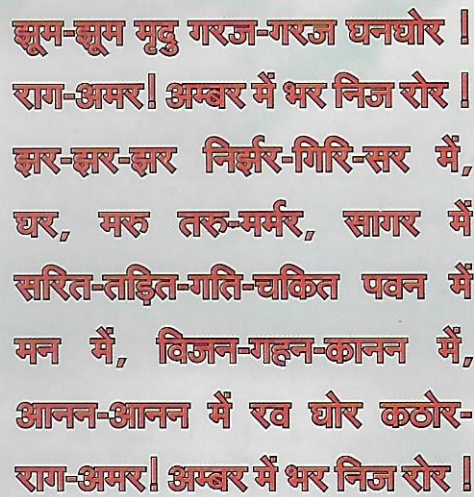 झूम-झूम मृदु गरज-गरज घनघोर !
राग-अमर! अम्बर में भर निज रोर !
झर-झर-झर निर्झर-गिरि-सर में,
घर, मरु तरु-मर्मर, सागर में
सरित-तड़ित-गति-चकित पवन में
मन में, विजन-गहन-कानन में,
आनन-आनन में रव घोर कठोर-
राग-अमर! अम्बर में भर निज रोर !